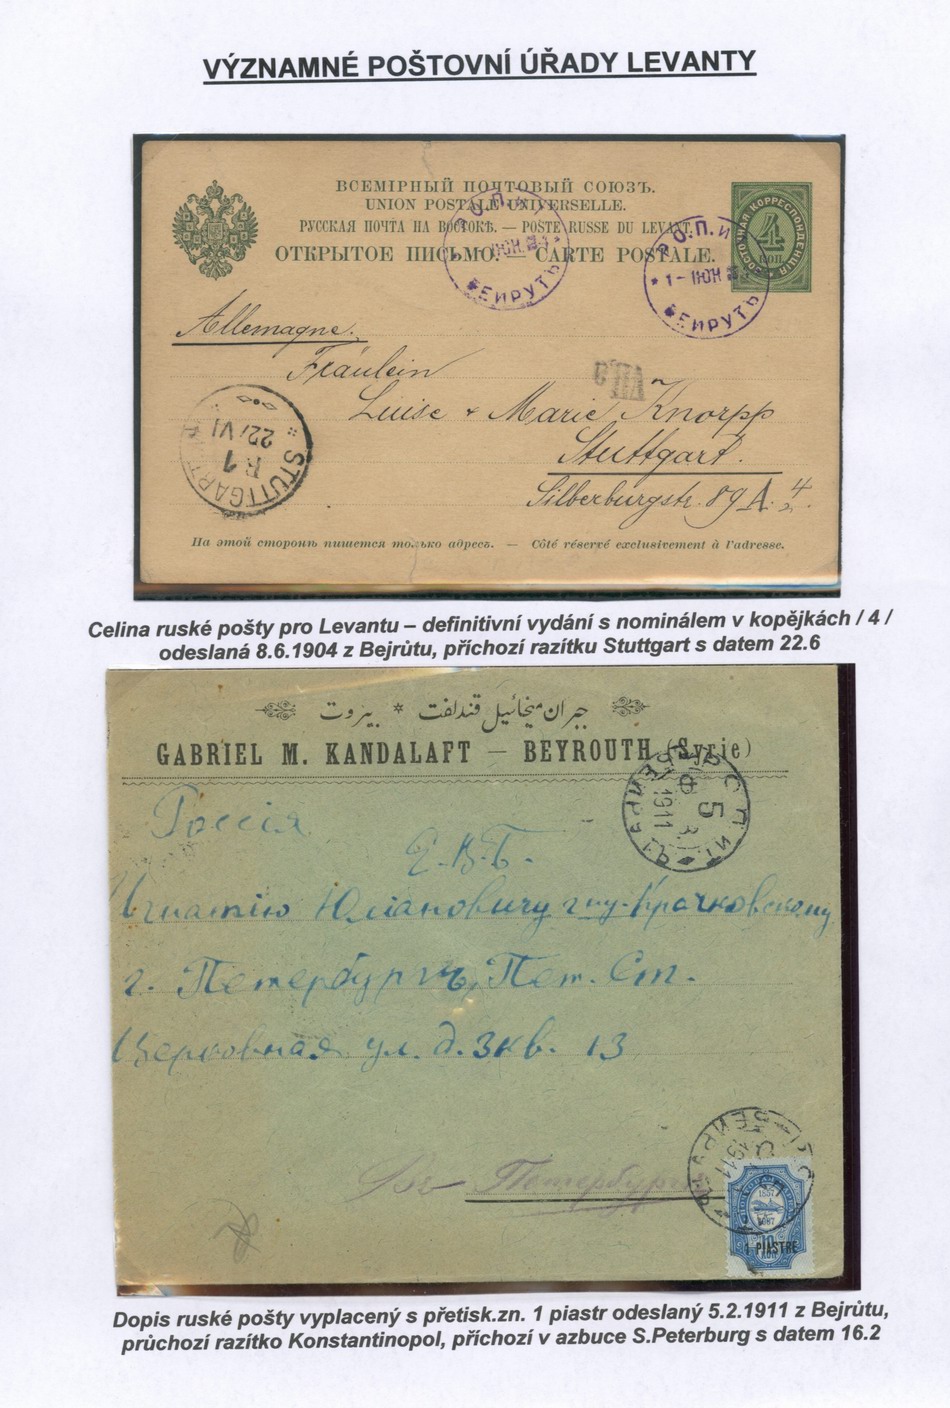 VÝZNAMNÉ POŠTOVNÍ ÚŘADY LEVANTY
ВСЕМІРНЫЙ ПОЧТОВЫЙ СОЮЗЪ.
UNION POSTALE UNIVERSELLE.
РУССКАЯ ПОЧТА НА ВОСТОКѢ. — POSTE RUSSE DU LEVANT.
ОТКРЫТОЕ ПИСЬМО. — CARTE POSTALE.
ВОСТОЧНАЯ КОРРЕСПОНДЕНЦІЯ
4
КОП.
Р.О.П.и Т.
1 - ІЮН
БЕЙРУТЪ
Allemagne.
Fräulein
Luise & Marie Knorpp
Stuttgart.
Silberburgstr. 89 A. 4/2.
STUTTGART
1
22/VI
На этой сторонѣ пишется только адресъ. — Côté réservé exclusivement à l'adresse.
Celina ruské pošty pro Levantu – definitivní vydání s nominálem v kopějkách / 4 /
odeslaná 8.6.1904 z Bejrůtu, příchozí razítku Stuttgart s datem 22.6
جبران ميخائيل قندلفت * بيروت
GABRIEL M. KANDALAFT — BEYROUTH (Syrie)
5
1911
Россія
С.П.Б.
Игнатію Юліановичу г-ну Крачковскому
г. Петербургъ, Пет. Ст.
Церковная ул. д. 3 кв. 13
Въ Петербургъ
1911
1857
1907
10
КОП
1 PIASTRE
Dopis ruské pošty vyplacený s přetisk.zn. 1 piastr odeslaný 5.2.1911 z Bejrůtu,
průchozí razítko Konstantinopol, příchozí v azbuce S.Peterburg s datem 16.2